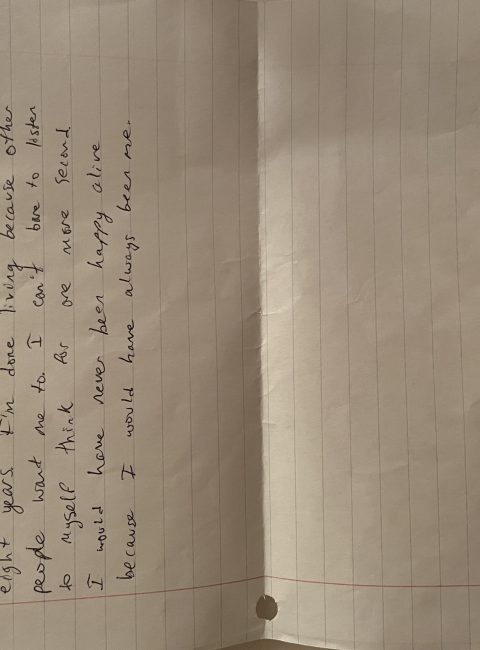 eight years. I'm done living because other
people want me to. I can't bare to listen
to myself think for one more second
I would have never been happy alive
because I would have always been me.